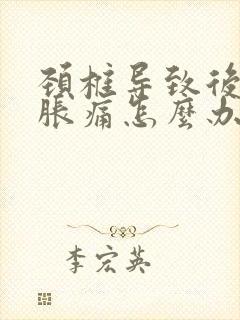 颈椎导致後
脹痛怎麼办
李宏英